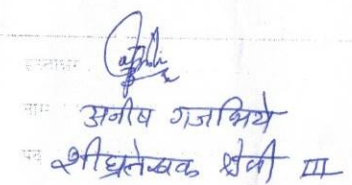 हस्ताक्षर
नाम अनीष गजभिये
पद शीघ्रलेखक श्रेणी III